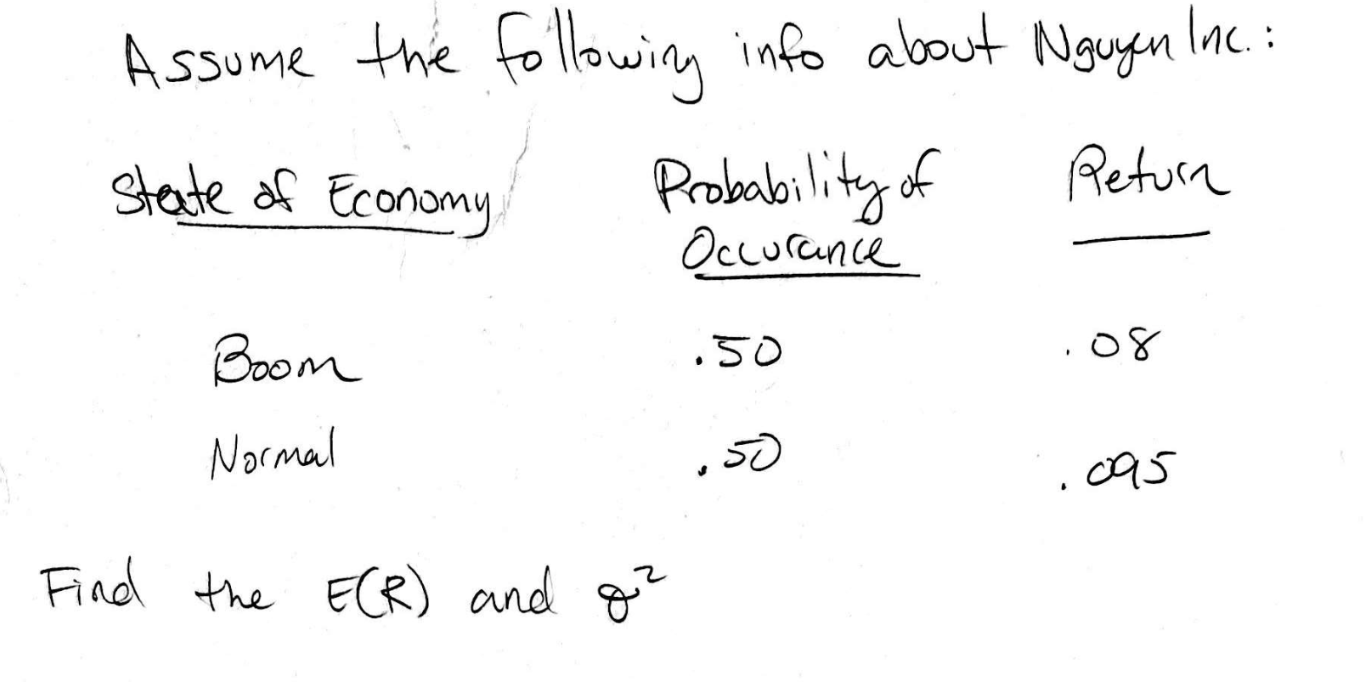 Assume the following info about Nguyen Inc.:
State of Economy Probability of Return
Occurance
Boom .50 .08
Normal .50 .095
Find the E(R) and σ²